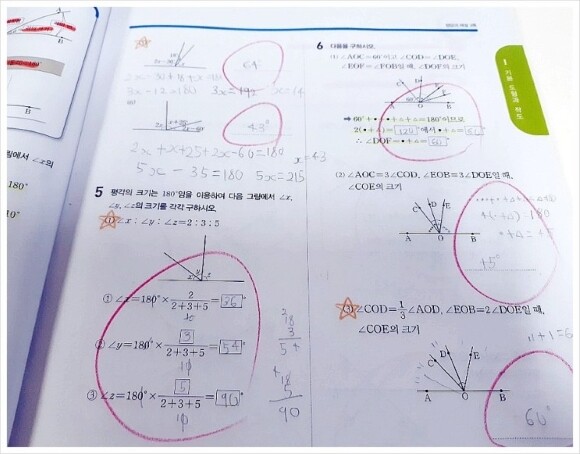 6 다음을 구하시오.
(1) ∠AOC=60°이고 ∠COD=∠DOE,
∠EOF=∠FOB일 때, ∠DOF의 크기
A O B
⇒ 60°+•+•+▵+▵=180°이므로
2(•+▵)=120°에서 •+▵=60°
∴ ∠DOF=•+▵=60°
(2) ∠AOC=3∠COD, ∠EOB=3∠DOE일 때,
∠COE의 크기
C D E
A O B
45°
(3) ∠COD=1/3∠AOD, ∠EOB=2∠DOE일 때,
∠COE의 크기
C D E
A O B
60°
I 기본 도형과 작도
30°
43°
2x+x+25+2x-60=180
x=43
5x-35=180 5x=215
5 평각의 크기는 180°임을 이용하여 다음 그림에서 ∠x,
∠y, ∠z의 크기를 각각 구하시오.
(1) ∠x : ∠y : ∠z=2 : 3 : 5
① ∠x=180°×2/(2+3+5)=36°
10
② ∠y=180°×3/(2+3+5)=54°
10
③ ∠z=180°×5/(2+3+5)=90°
10
18
3
54
18
5
90
B
림에서 ∠x의
180°
180°